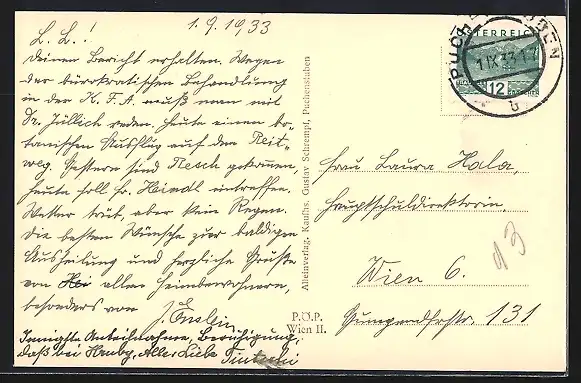 L. L.! 1.9.1933
deinen Bericht erhalten. Wegen
der bürokratischen Behandlung
in der K. F. A. muß man mit
Dr. Jüllich reden. Heute einen bo-
tanischen Ausflug auf den Reit-
weg. Gestern sind Resch gekommen,
heute soll Fr. Haindl eintreffen.
Wetter trüb, aber kein Regen.
Die besten Wünsche zur baldigen
Ausheilung und herzliche Grüße
von allen Heimbewohnern,
besonders von
Innigste Anteilnahme, Beruhigung,
daß bei Alles Liebe
Alleinverlag, Kaufhs. Gustav Schrempf, Puchenstuben
P.Ö.P.
Wien II.
ÖSTERREICH
1.IX.33
12
b
Frau Laura Hala,
Hauptschuldirektorin,
Wien 6.
Gumpendfstr. 131